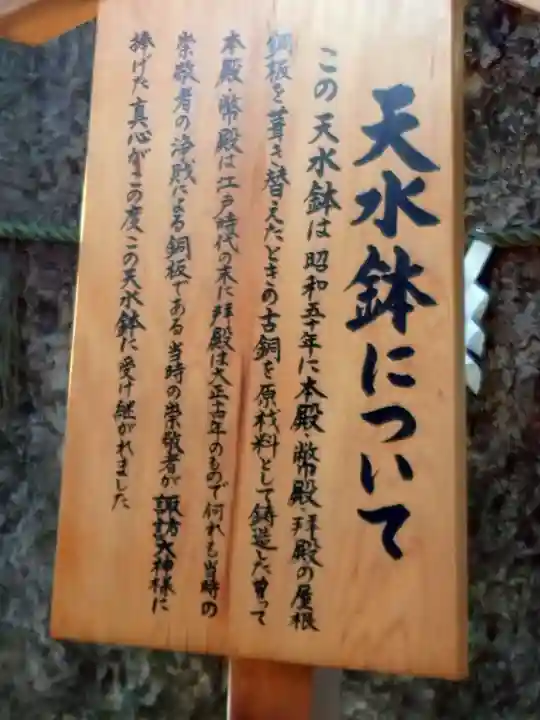 天水鉢について
この天水鉢は昭和五十年に本殿・幣殿・拝殿の屋根
銅板を葺き替えたときの古銅を原材料として鋳造した曽って
本殿・幣殿は江戸時代の末に拝殿は大正十年のもので何れも当時の
崇敬者の浄財による銅板である当時の崇敬者が諏訪大神様に
捧げた真心がこの度この天水鉢に受け継がれました